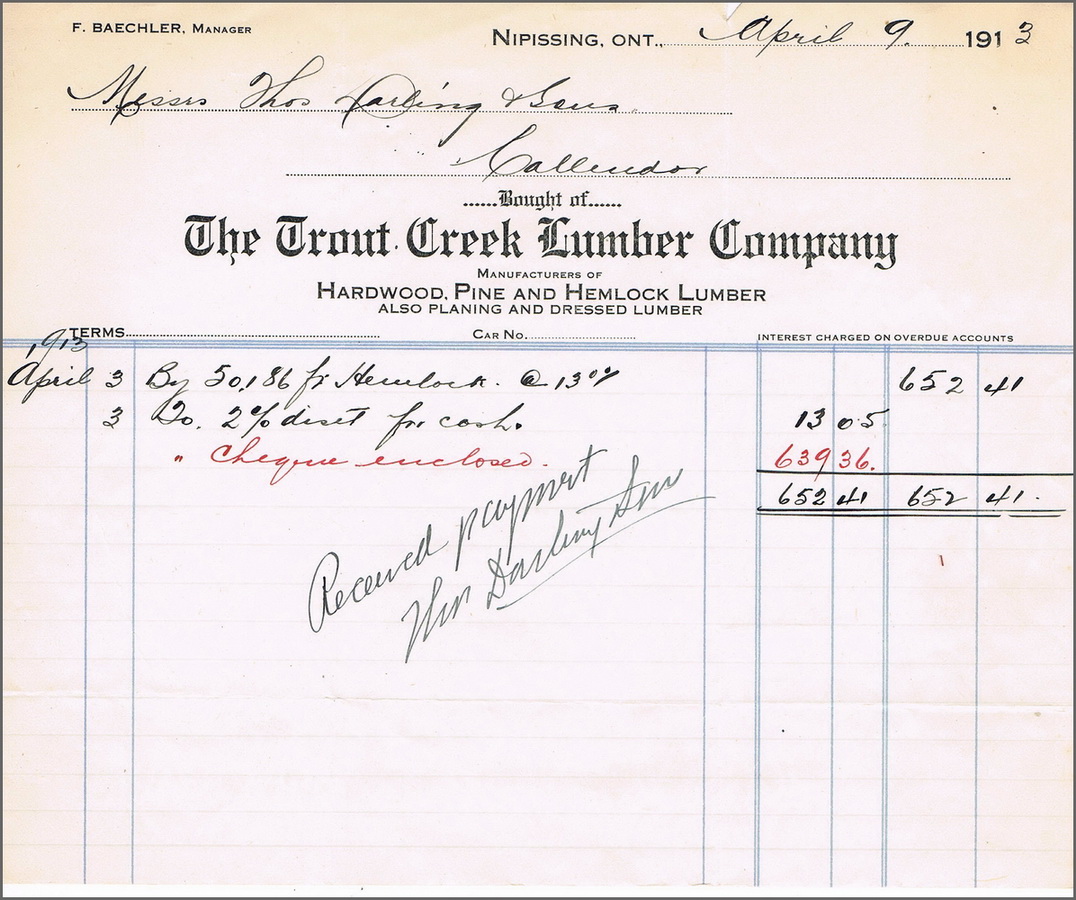 F. BAECHLER, MANAGER
NIPISSING, ONT., April 9. 1913
Messrs Thos Darling & Sons
Callendor
......Bought of......
The Trout Creek Lumber Company
MANUFACTURERS OF
HARDWOOD, PINE AND HEMLOCK LUMBER
ALSO PLANING AND DRESSED LUMBER
TERMS CAR NO. INTEREST CHARGED ON OVERDUE ACCOUNTS
1913
April 3 By 50,186 ft Hemlock. @ 13 652 41
3 To. 2% disct for cash. 13 05
" Cheque enclosed. 639 36.
652 41 652 41.
Received payment
Thos Darling Sons